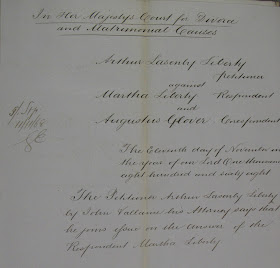 In Her Majesty's Court for Divorce
and Matrimonial Causes
Arthur Lasenby Liberty
Petitioner
against
Martha Liberty Respondent
and
Augustus Glover Corespondent
The Eleventh day of November in
the year of our Lord One thousand
eight hundred and sixty eight
The Petitioner Arthur Lasenby Liberty
by John Vallance his Attorney says that
he joins issue on the Answer of the
Respondent Martha Liberty